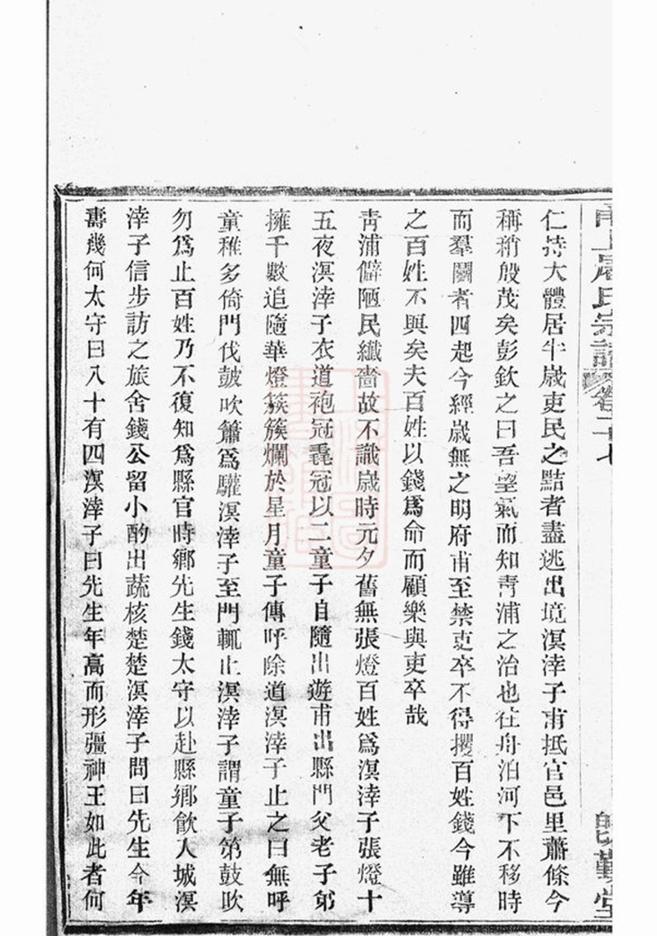 仁持大體居半歲吏民之黠者盡逃出境溟涬子甫抵官邑里蕭條今
稱稍殷茂矣彭欽之曰吾望氣而知靑浦之治也往舟泊河下不移時
而羣鬬者四起今經歲無之明府甫至禁吏卒不得攫百姓錢今雖導
之百姓不與矣夫百姓以錢爲命而顧樂與吏卒哉
靑浦僻陋民纖嗇故不識歲時元夕舊無張燈百姓爲溟涬子張燈十
五夜溟涬子衣道袍冠毳冠以二童子自隨出遊甫出縣門父老子弟
擁千數追隨華燈簇簇爛於星月童子傳呼除道溟涬子止之曰無呼
童稚多倚門伐鼓吹簫爲驩溟涬子至門輒止溟涬子謂童子第鼓吹
勿爲止百姓乃不復知爲縣官時鄉先生錢太守以赴縣鄉飮人城溟
涬子信步訪之旅舍錢公留小酌出蔬核楚楚溟涬子問曰先生今年
壽幾何太守曰八十有四溟涬子曰先生年高而形彊神王如此者何
氏宗譜
卷二十七
勤堂